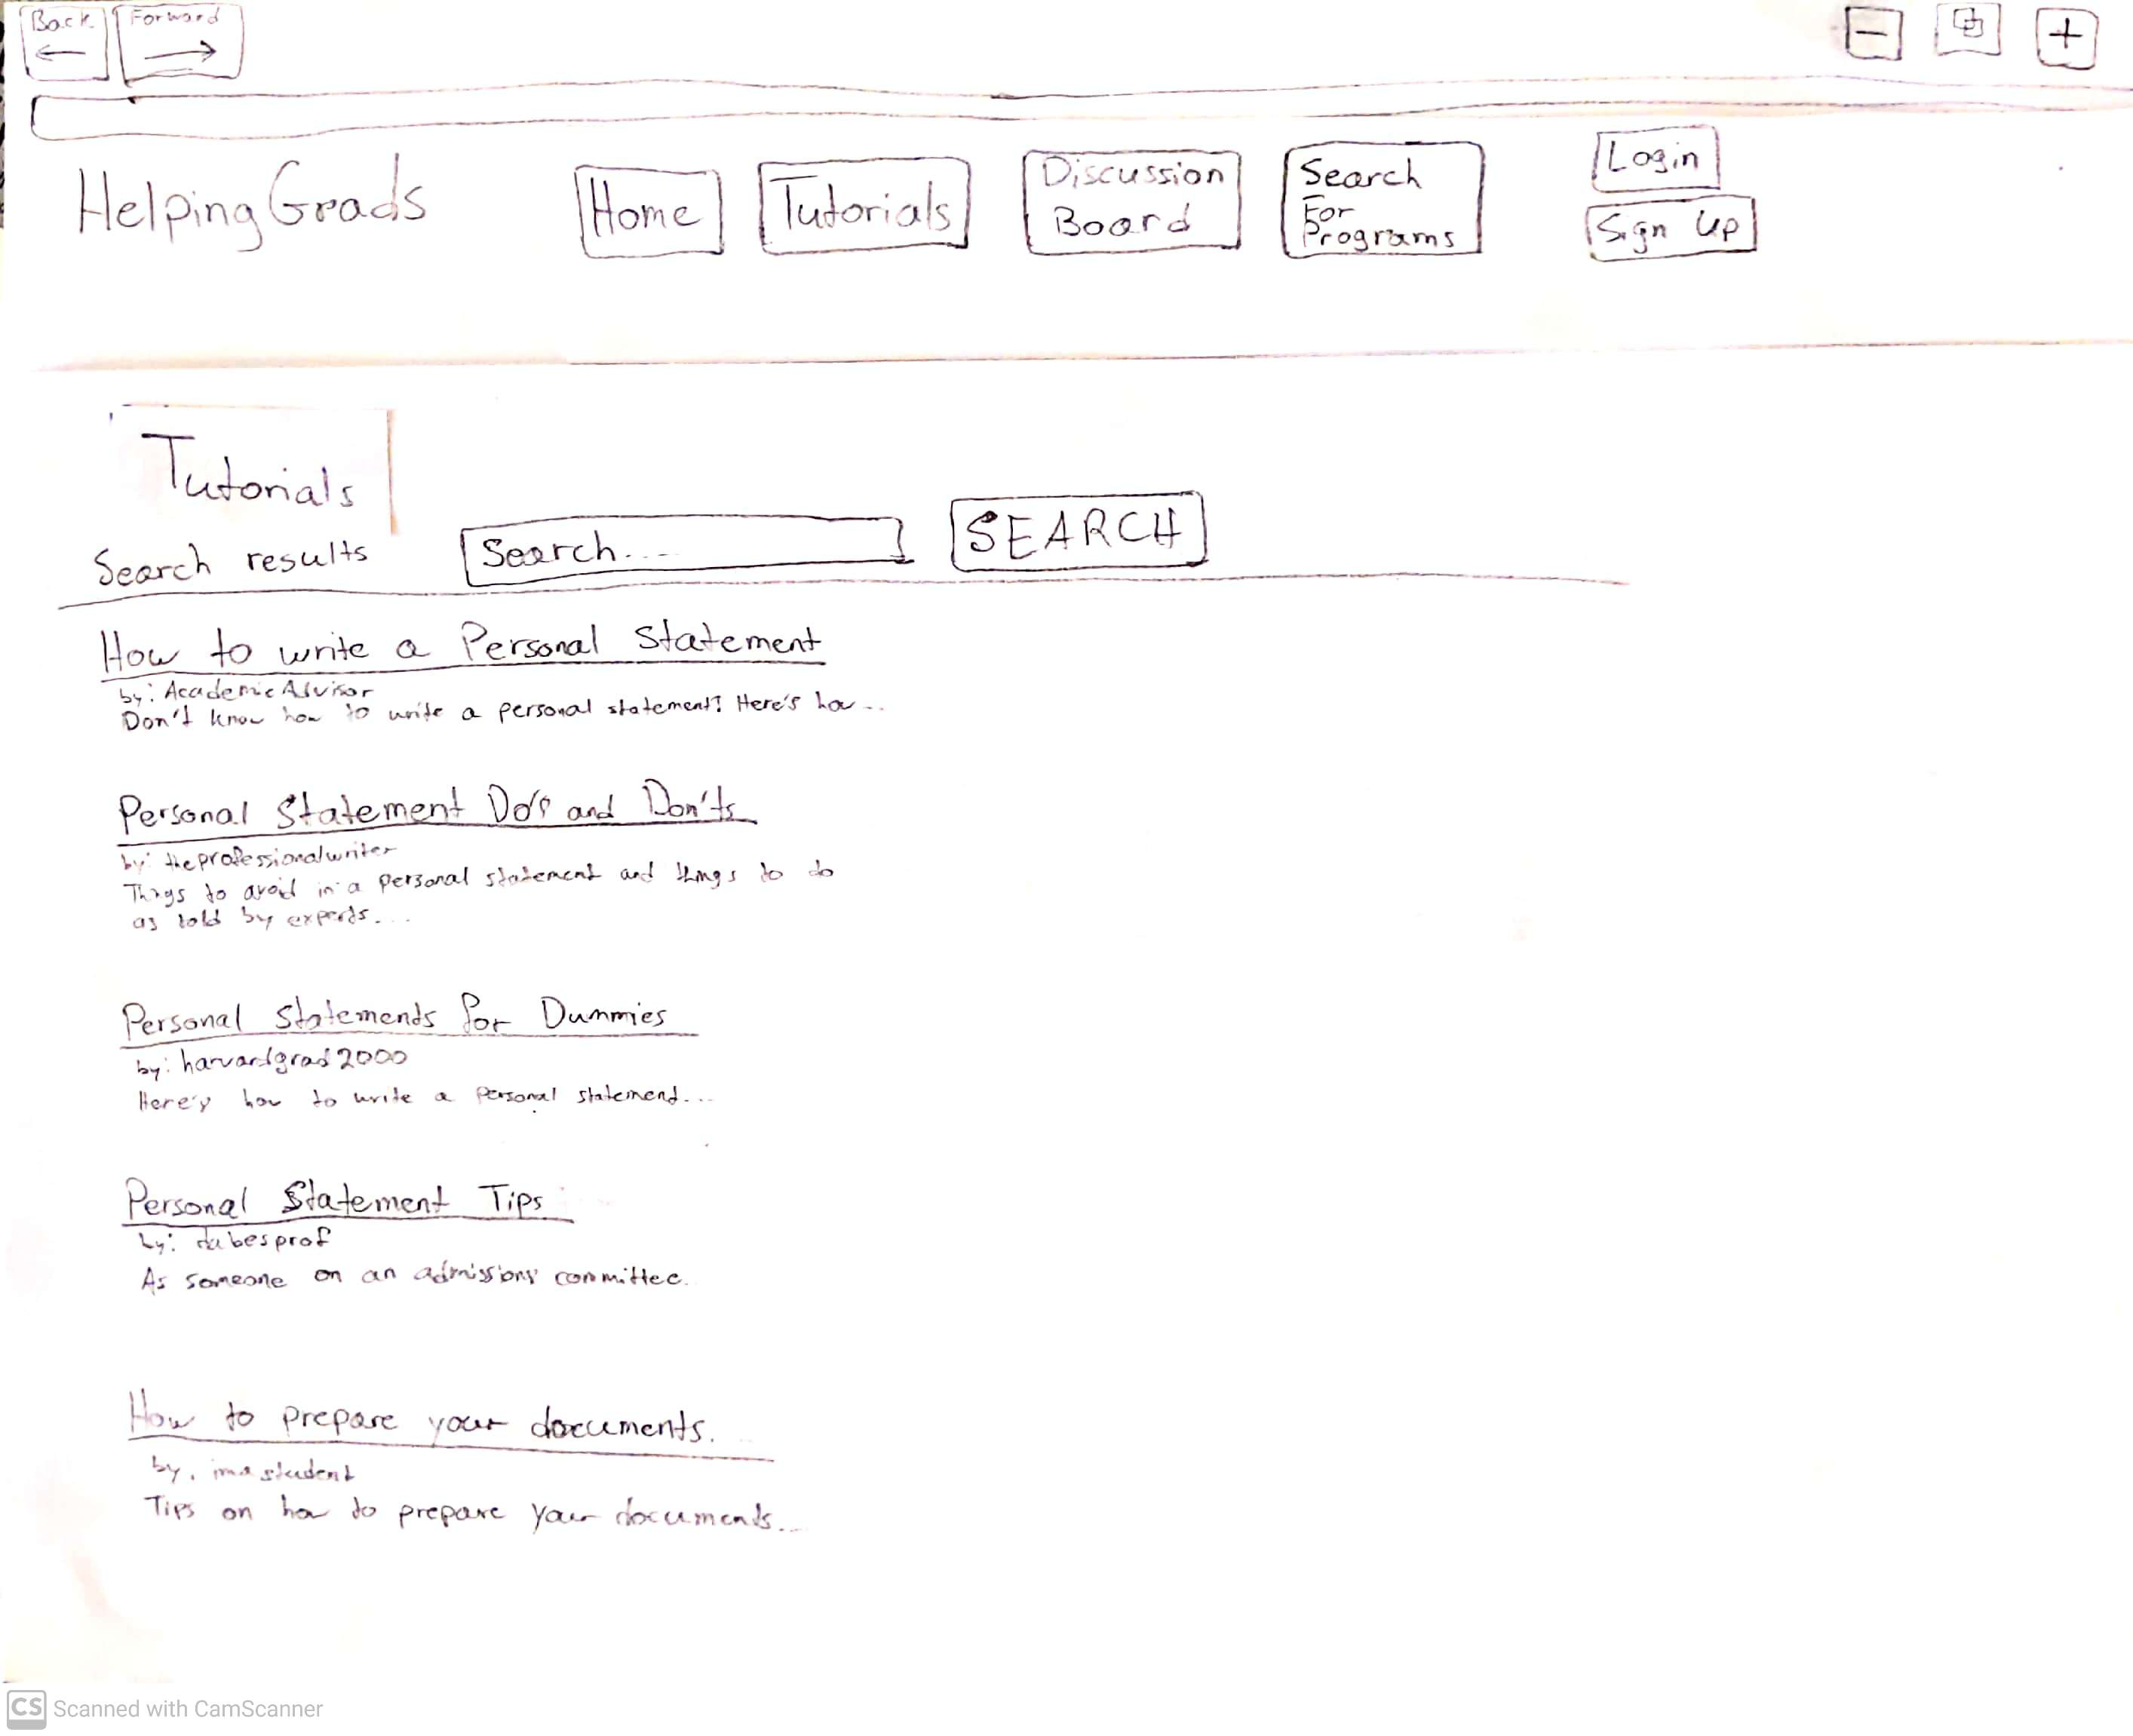 Back
Forward
HelpingGrads
Home
Tutorials
Discussion
Board
Search
For
Programs
Login
Sign Up
Tutorials
Search results
Search....
SEARCH
How to write a Personal Statement
by: AcademicAdvisor
Don't know how to write a personal statement? Here's how...
Personal Statement Do's and Don'ts
by: theprofessionalwriter
Things to avoid in a personal statement and things to do
as told by experts....
Personal Statements for Dummies
by: harvardgrad2000
Here's how to write a personal statement...
Personal Statement Tips
by: dabesprof
As someone on an admissions committee.
How to prepare your documents.
by. imastudent
Tips on how to prepare your documents...
CS Scanned with CamScanner